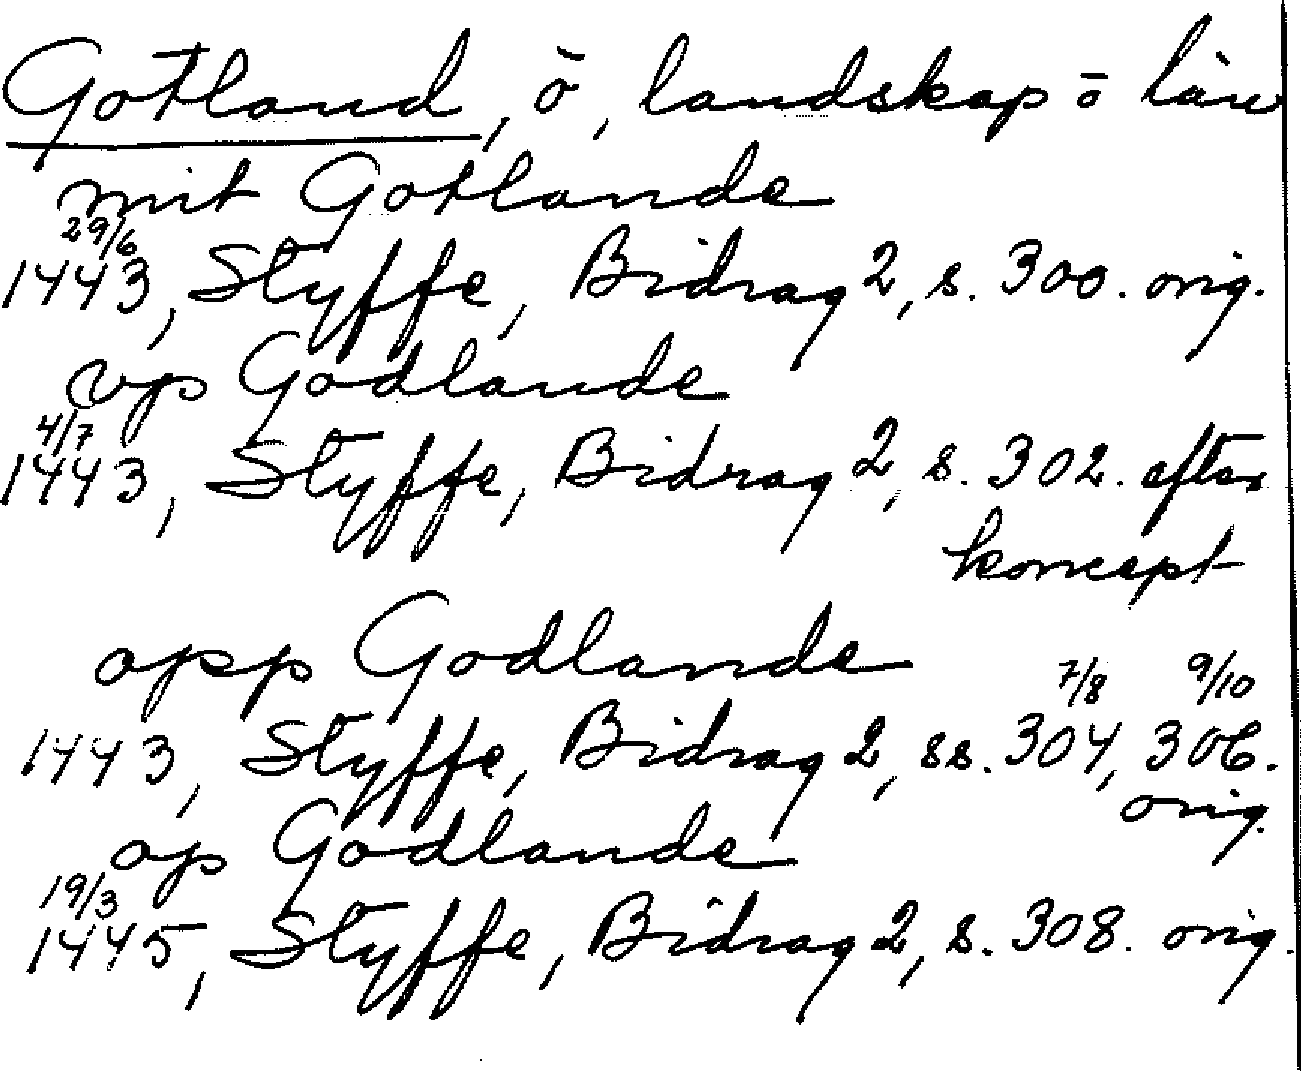 Gotland, ö, landskap o län
mit Gotlande
29/6
1443, Styffe, Bidrag 2, s. 300. orig.
vp Godlande
4/7
1443, Styffe, Bidrag 2, s. 302. efter
koncept
opp Godlande
7/8 9/10
1443, Styffe, Bidrag 2, ss. 304, 306.
orig.
op Godlande
19/3
1445, Styffe, Bidrag 2, s. 308. orig.